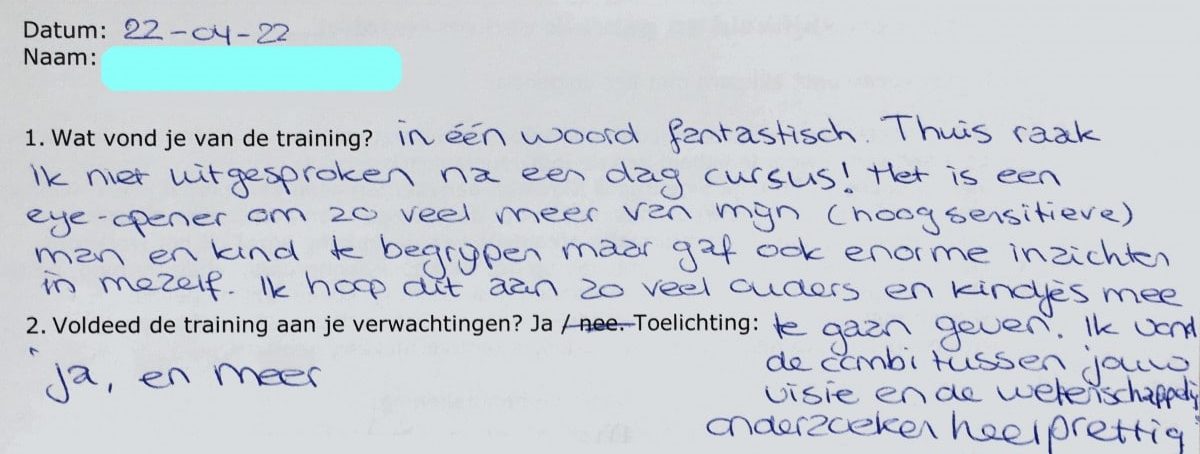 Datum: 22-04-22
Naam:
1. Wat vond je van de training? in één woord fantastisch. Thuis raak
ik niet uitgesproken na een dag cursus! Het is een
eye-opener om zo veel meer van mijn (hoogsensitieve)
man en kind te begrijpen maar gaf ook enorme inzichten
in mezelf. Ik hoop dit aan zo veel ouders en kindjes mee
2. Voldeed de training aan je verwachtingen? Ja / nee. Toelichting: te gaan geven. Ik vond
de combi tussen jouw
ja, en meer
visie en de wetenschappelij
onderzoeken heel prettig